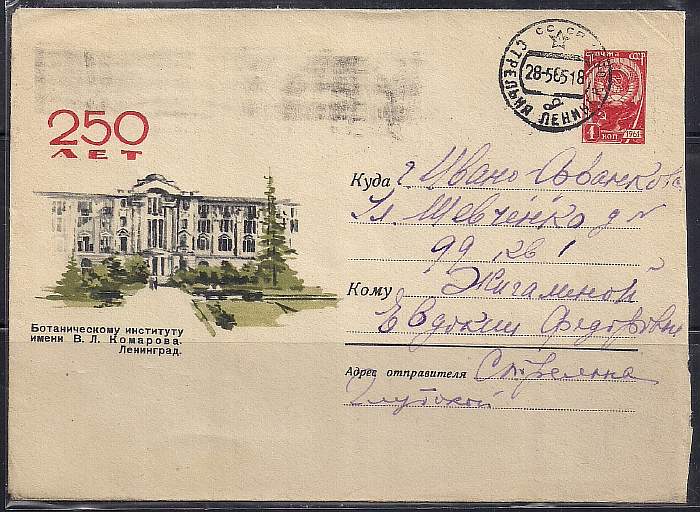 250
ЛЕТ
Ботаническому институту
имени В. Л. Комарова.
Ленинград.
СССР
СТРЕЛЬНА ЛЕНИН
28-5 65 18
ПОЧТА СССР
4 КОП 1961
Куда г. Ивано Франковск
ул. Шевченко д №
99 кв 1
Кому Жигаминой
Евдокии Федоровне
Адрес отправителя Стрельна
Глубокой